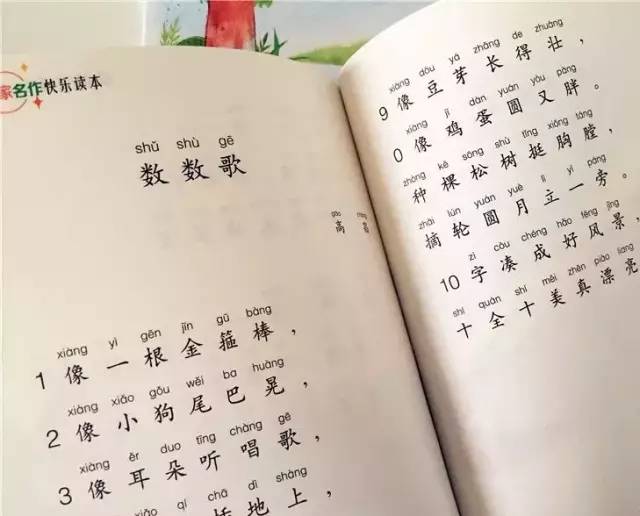 家名作快乐读本
shǔ shù gē
数数歌
高
xiàng yì gēn jīn gū bàng
1像一根金箍棒，
xiàng xiǎo gǒu wěi ba huàng
2像小狗尾巴晃，
xiàng ěr duo tīng chàng gē
3像耳朵听唱歌，
xiǎo qí chā dì shàng
地上，
xiàng dòu yá zhǎng de zhuàng
9像豆芽长得壮，
xiàng jī dàn yuán yòu pàng
0像鸡蛋圆又胖。
zhòng kē sōng shù tǐng xiōng táng
种棵松树挺胸膛，
zhāi lún yuán yuè lì yì páng
摘轮圆月立一旁。
zì còu chéng hǎo fēng jǐng
10字凑成好风景，
shí quán shí měi zhēn piào liang
十全十美真漂亮